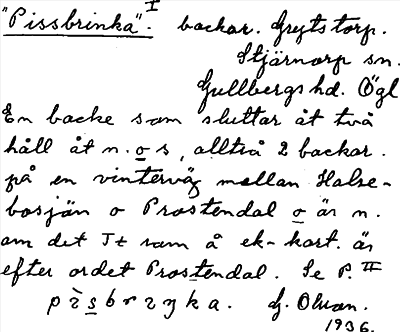 "Pissbrinka". I backar. Grytstorp.
Stjärnorp sn.
Gullbergs hd. Ögl
En backe som sluttar åt två
håll åt n. o s, alltså 2 backar.
på en vinterväg mellan Halse-
bosjön o Prostendal o är n.
om det Jt som å ek-kort. är
efter ordet Prostendal. Se P II
p s b r i ŋ k a. G. Olson.
1936.